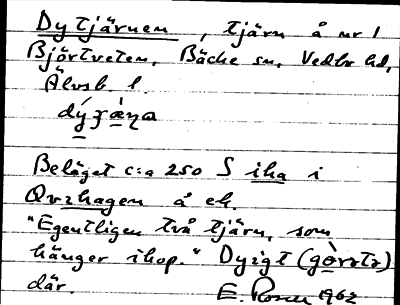 Dytjärnen, tjärn å nr 1
Björtveten, Bäcke sn, Vedbo hd,
Älvsb. l.
Beläget c:a 250 S iha i
hagen å ek.
"Egentligen två tjärn, som
hänger ihop." Dyigt
där. E. Rosen 1962